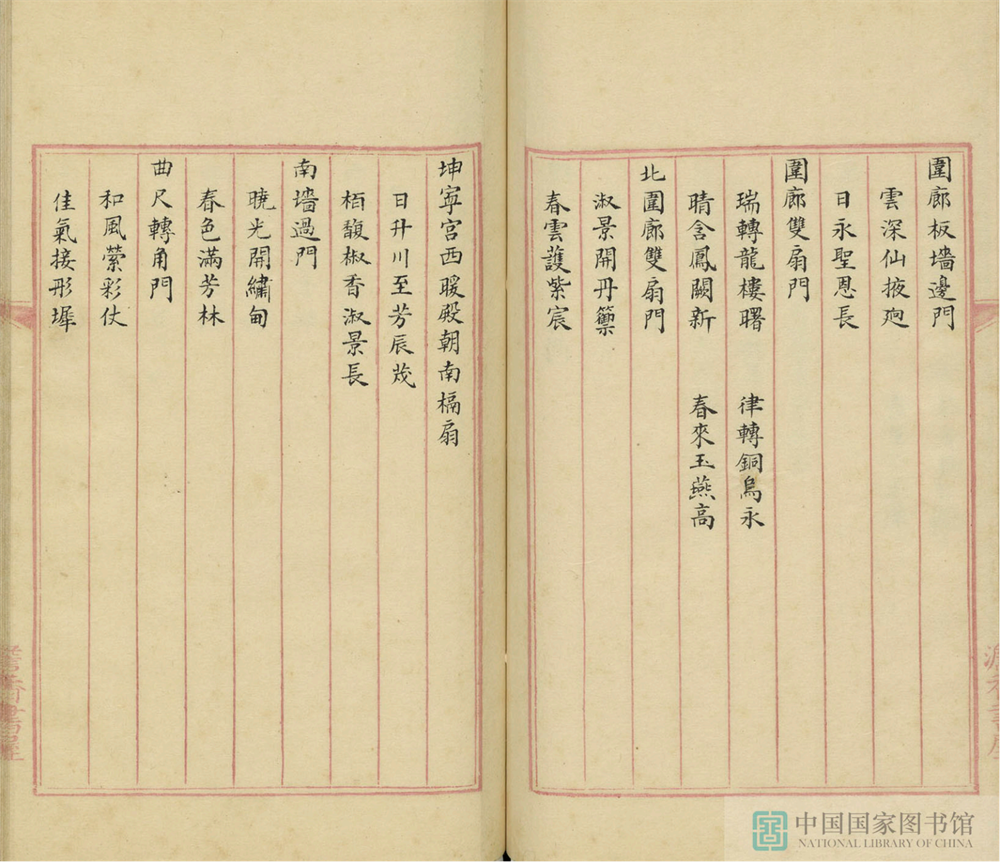 圍廊板墻邊門
雲深仙掖逈
日永聖恩長
圍廊雙扇門
瑞轉龍樓曙　律轉銅烏永
晴含鳳闕新　春來玉燕高
北圍廊雙扇門
淑景開丹籞
春雲護紫宸
坤寧宮西暖殿朝南槅扇
日升川至芳辰茂
栢馥椒香淑景長
南墻過門
曉光開繡甸
春色滿芳林
曲尺轉角門
和風縈彩仗
佳氣接彤墀
中国国家图书馆
NATIONAL LIBRARY OF CHINA